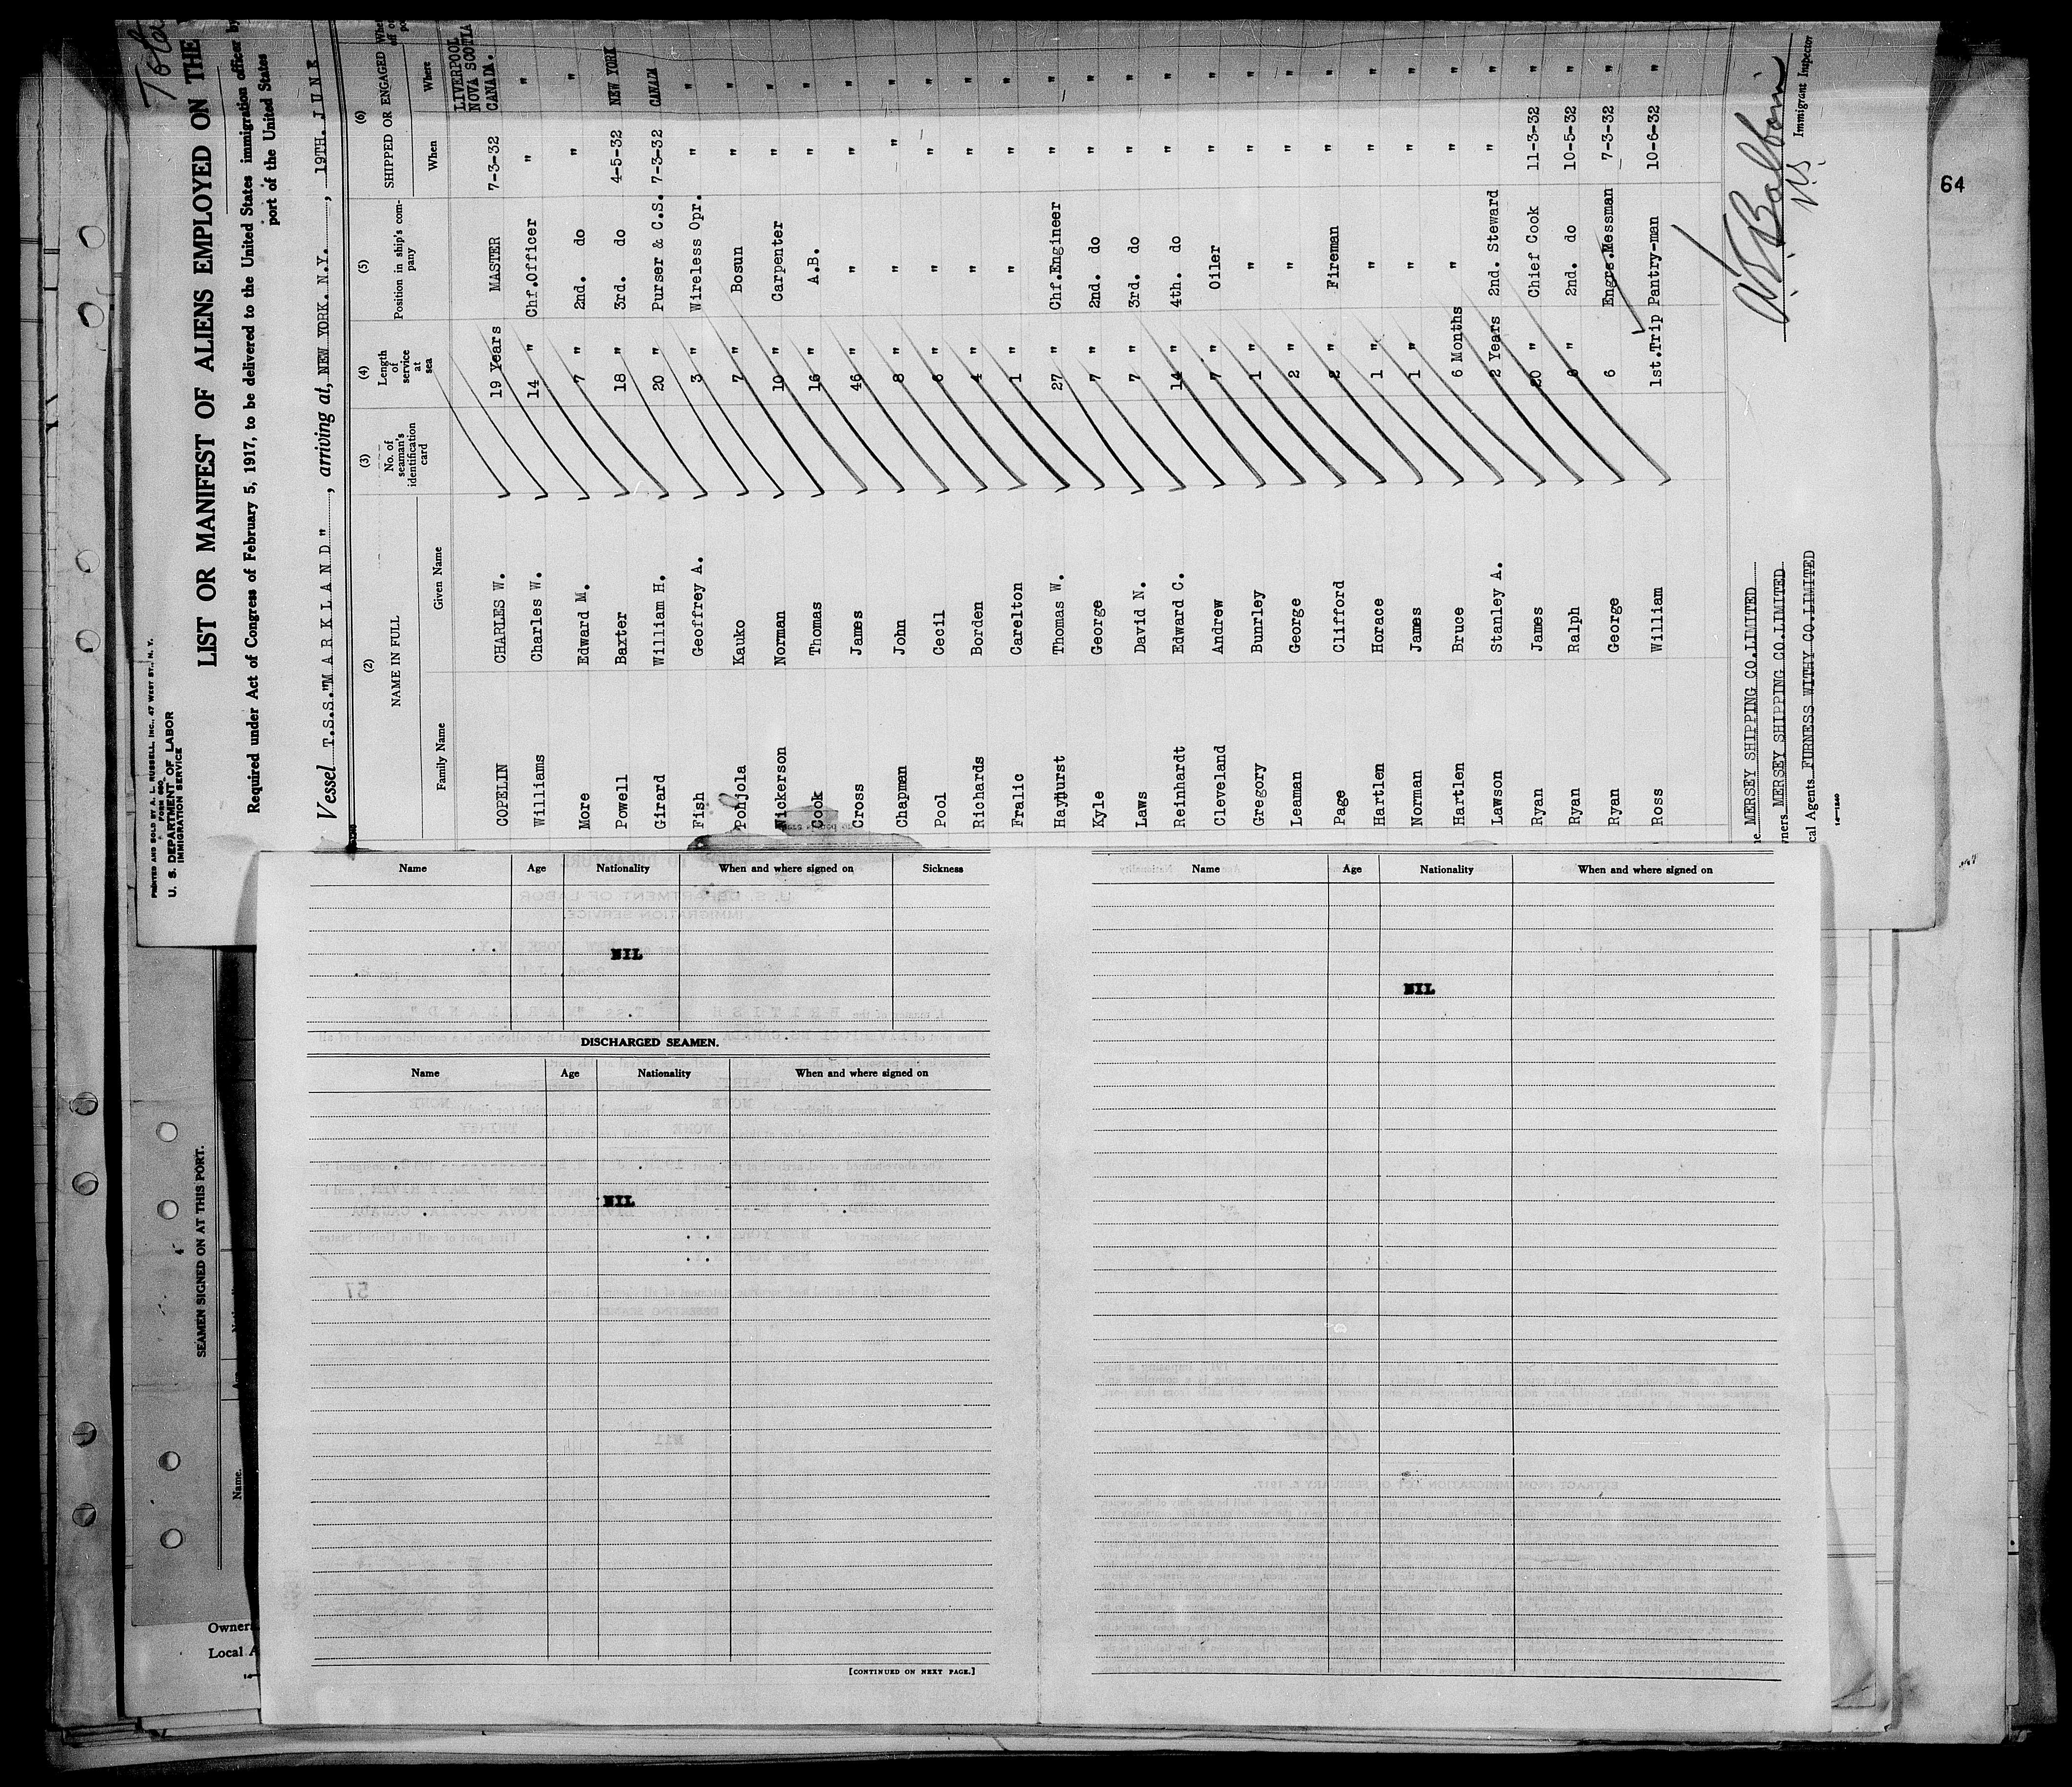 PRINTED AND SOLD BY A. L. RUSSELL, INC., 47 WEST ST., N. Y.
FORM 680
U. S. DEPARTMENT OF LABOR
IMMIGRATION SERVICE
LIST OR MANIFEST OF ALIENS EMPLOYED ON THE
Required under Act of Congress of February 5, 1917, to be delivered to the United States immigration officer by
port of the United States
Vessel T.S.S."MARKLAND", arriving at, NEW YORK. N.Y., 19TH. JUNE
(2) NAME IN FULL (3) No. of seaman's identification card (4) Length of service at sea (5) Position in ship's company (6) SHIPPED OR ENGAGED
Family Name Given Name When Where
LIVERPOOL
NOVA SCOTIA
COPELIN CHARLES W. 19 Years MASTER 7-3-32 CANADA.
Williams Charles W. 14 " Chf.Officer " "
More Edward M. 7 " 2nd. do " "
Powell Baxter 18 " 3rd. do 4-5-32 NEW YORK
Girard William H. 20 " Purser & C.S. 7-3-32 CANADA
Fish Geoffrey A. 3 " Wireless Opr. " "
Pohjola Kauko 7 " Bosun " "
Nickerson Norman 10 " Carpenter " "
Cook Thomas 16 " A.B. " "
Cross James 46 " " " "
Chapman John 8 " " " "
Pool Cecil 6 " " " "
Richards Borden 4 " " " "
Fralic Carelton 1 " " " "
Hayhurst Thomas W. 27 " Chf.Engineer " "
Kyle George 7 " 2nd. do " "
Laws David N. 7 " 3rd. do " "
Reinhardt Edward C. 14 " 4th. do " "
Cleveland Andrew 7 " Oiler " "
Gregory Bunrley 1 " " " "
Leaman George 2 " " " "
Page Clifford 2 " Fireman " "
Hartlen Horace 1 " " " "
Norman James 1 " " " "
Hartlen Bruce 6 Months " " "
Lawson Stanley A. 2 Years 2nd. Steward " "
Ryan James 20 " Chief Cook 11-3-32 "
Ryan Ralph 6 " 2nd. do 10-5-32 "
Ryan George 6 Engrs.Messman 7-3-32 "
Ross William 1st.Trip Pantry-man 10-6-32 "
MERSEY SHIPPING CO.LIMITED
MERSEY SHIPPING CO.LIMITED
cal Agents FURNESS WITHY CO.LIMITED
Immigrant Inspector
64
Name Age Nationality When and where signed on Sickness
NIL
DISCHARGED SEAMEN.
Name Age Nationality When and where signed on
NIL
[CONTINUED ON NEXT PAGE.]
Name Age Nationality When and where signed on
NIL
SEAMEN SIGNED ON AT THIS PORT.
Name.
Owner
Local A